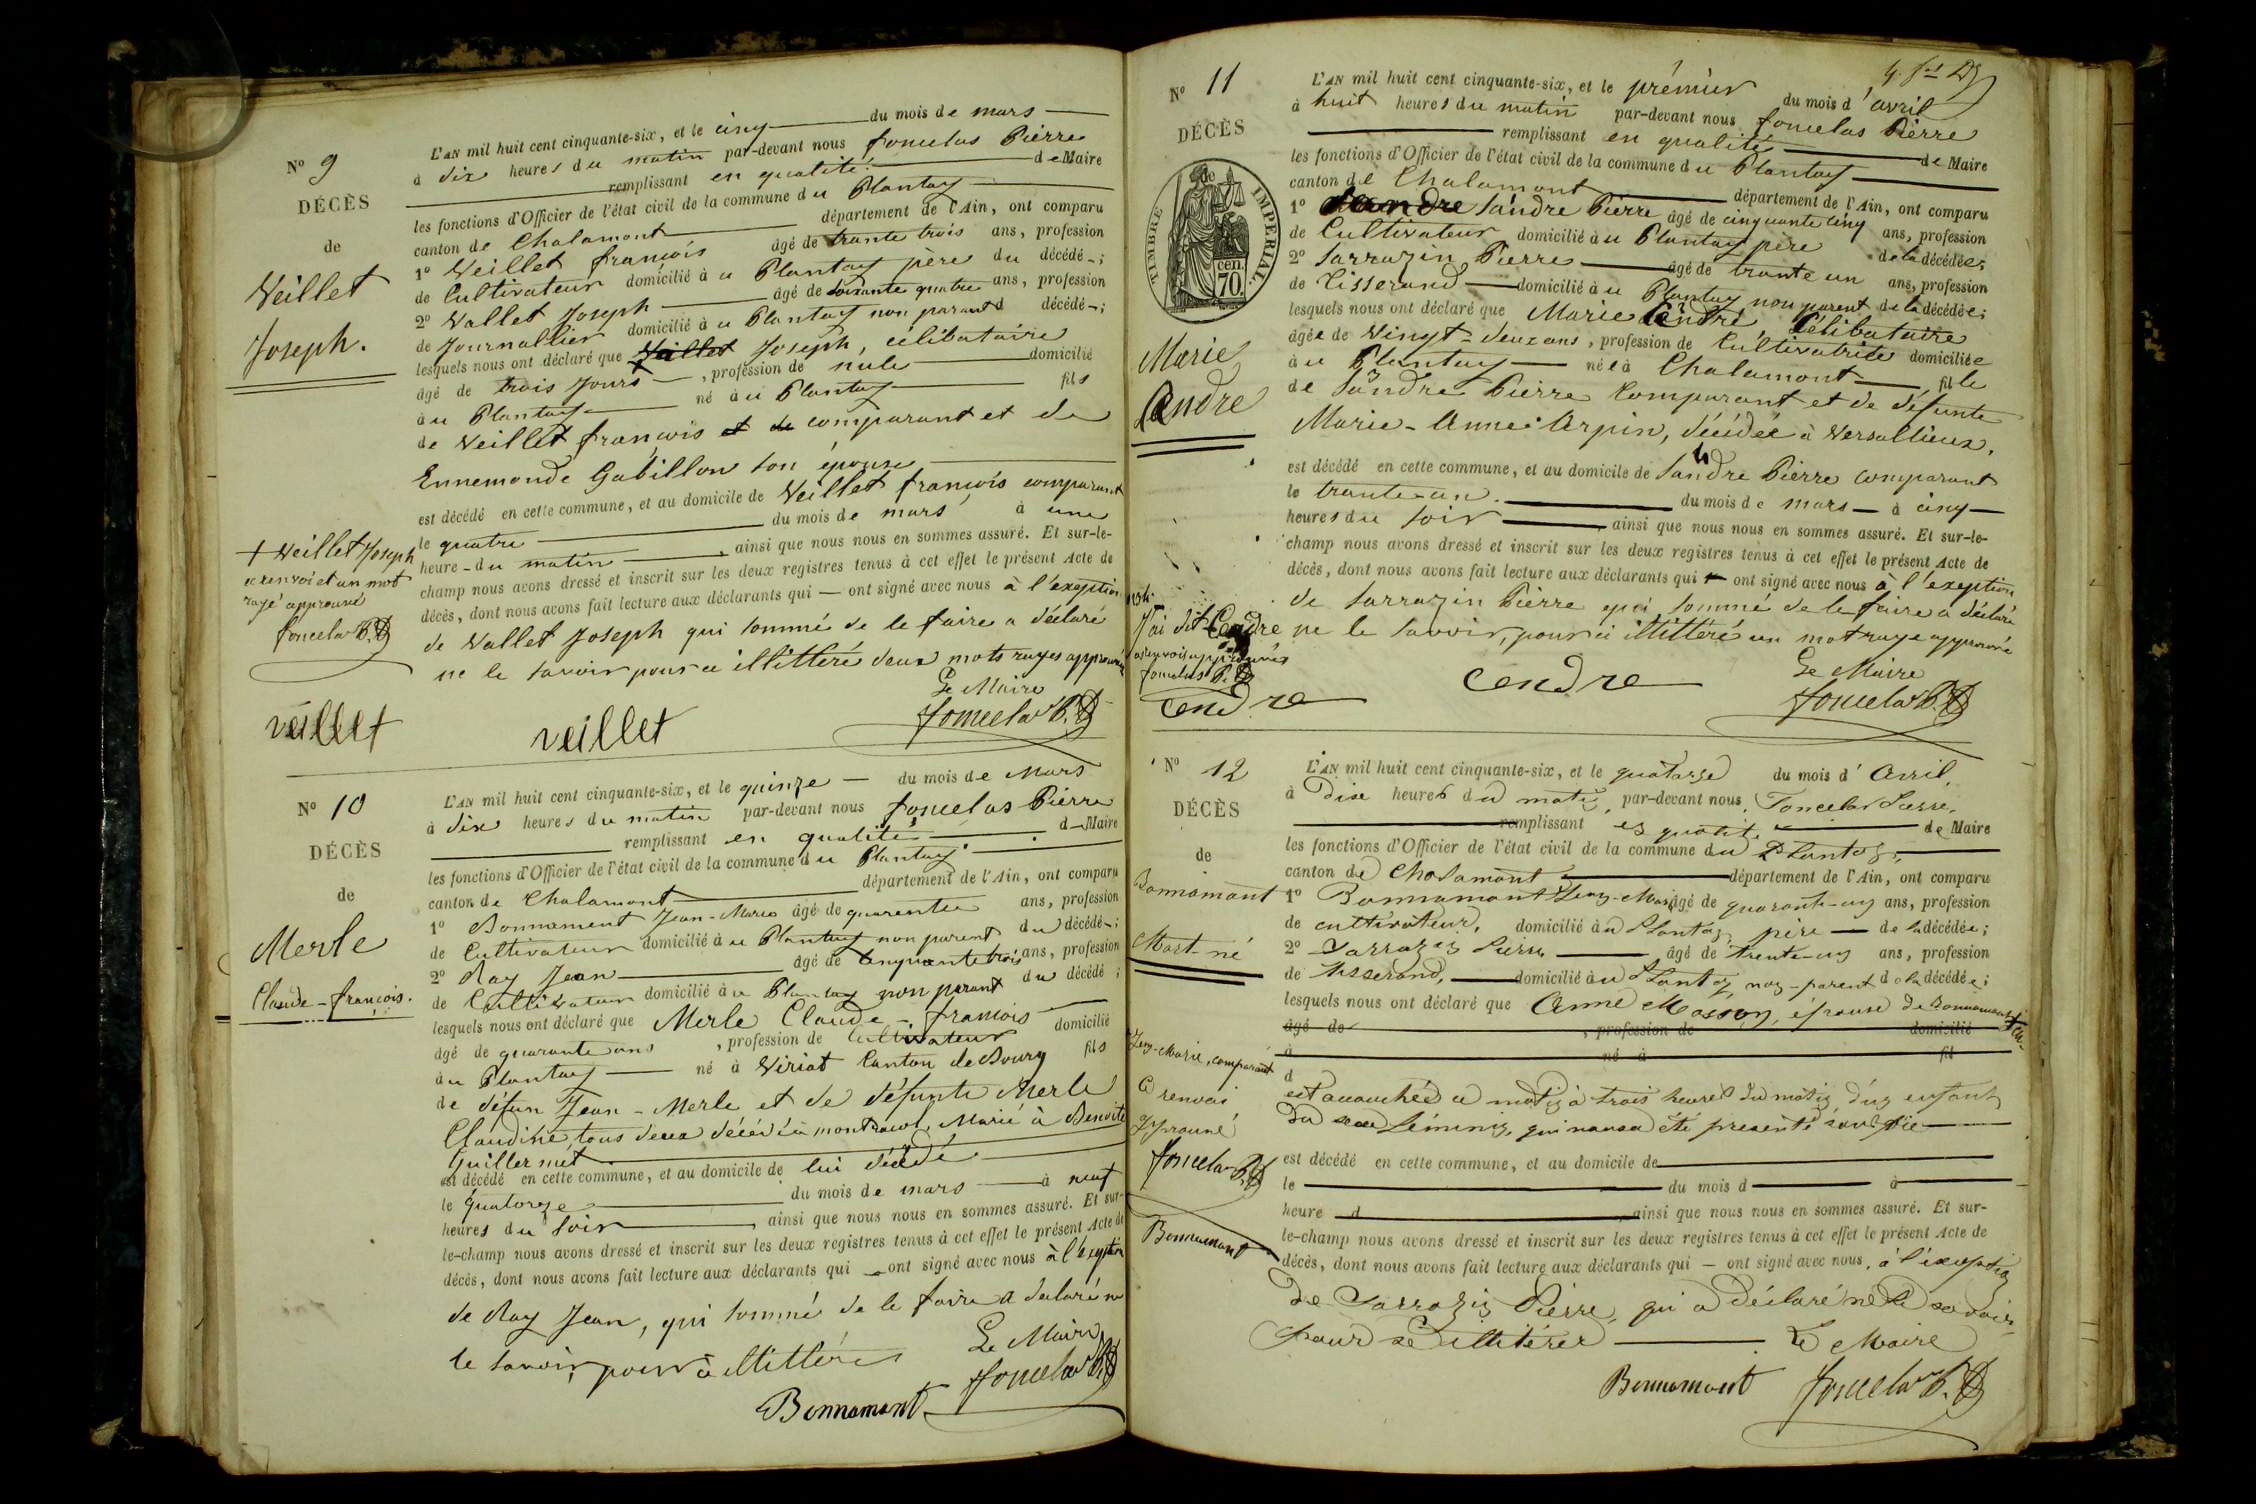 N° 9
DÉCÈS
de
Veillet
Joseph.
L'AN mil huit cent cinquante-six, et le cinq du mois de mars
à dix heures du matin par-devant nous foncelas Pierre
remplissant en qualité de Maire
les fonctions d'Officier de l'état civil de la commune du Plantay
canton de Chalamont département de l'Ain, ont comparu
1° Veillet françois âgé de trante trois ans, profession
de Cultivateur domicilié à u Plantay père du décédé ;
2° Vallet Joseph âgé de soixante quatre ans, profession
de Journallier domicilié à u Plantay non parant d décédé ;
lesquels nous ont déclaré que Veillet Joseph, célibataire
âgé de trois jours, profession de nule domicilié
à u Plantay né à u Plantay fils
de Veillet françois et de comparant et de
Ennemonde Gabillon son épouse
est décédé en cette commune, et au domicile de Veillet françois comparant
le quatre du mois de mars à une
heure du matin, ainsi que nous nous en sommes assuré. Et sur-le-
champ nous avons dressé et inscrit sur les deux registres tenus à cet effet le présent Acte de
décès, dont nous avons fait lecture aux déclarants qui — ont signé avec nous à l'exeption
de Vallet Joseph qui sommé de le faire a déclaré
ne le savoir pour ce illittéré deux mots rayes approuvés
Le Maire
foncelas P.
+ Veillet Joseph
ce renvoi et un mot
rayé approuvé
foncelas P.
veillet
veillet
N° 10
DÉCÈS
de
Merle
Claude-françois.
L'AN mil huit cent cinquante-six, et le quinze — du mois de Mars
à dix heures du matin par-devant nous foncelas Pierre
remplissant en qualité d — Maire
les fonctions d'Officier de l'état civil de la commune du Plantay
canton de Chalamont département de l'Ain, ont comparu
1° Bonnament Jean-Marie âgé de quarentee ans, profession
de Cultivateur domicilié à u Plantay non parent du décédé ;
2° Ray Jean âgé de cinquante trois ans, profession
de Cultivateur domicilié à u Plantay non parant du décédé ;
lesquels nous ont déclaré que Merle Claude-francois
âgé de quarante ans, profession de Cultivateur domicilié
à u Plantay né à Viriat Canton de Bourg fils
de défun Jean-Merle et de défunte Merle
Claudine, tous deux décédé à montracol, Marié à Benoite
Guillermét
est décédé en cette commune, et au domicile de lui décédé
le quatorze du mois de mars à neuf
heures du soir, ainsi que nous nous en sommes assuré. Et sur-
le-champ nous avons dressé et inscrit sur les deux registres tenus à cet effet le présent Acte de
décès, dont nous avons fait lecture aux déclarants qui — ont signé avec nous à l'exeption
de Ray Jean, qui sommé de le faire a déclaré ne
le savoir, pour ce illittéré
Le Maire
foncelas P.
Bonnamant
N° 11
DÉCÈS
de
TIMBRE IMPERIAL.
70 cen.
Marie
Cendre
L'AN mil huit cent cinquante-six, et le prémier du mois d'avril
à huit heures du matin par-devant nous foncelas Pierre
remplissant en qualité de Maire
les fonctions d'Officier de l'état civil de la commune du Plantay
canton de Chalamont département de l'Ain, ont comparu
1° Sandre Pierre âgé de cinquante cinq ans, profession
de Cultivateur domicilié à u Plantay père de la décédée ;
2° Sarrazin Pierre âgé de trante un ans, profession
de Tisserand domicilié à u Plantay non parent de la décédée ;
lesquels nous ont déclaré que Marie Cendre, Célibataire
âgée de Vingt-deux ans, profession de Cultivatrice domiciliée
à u Plantay née à Chalamont fille
de Sandre Pierre Comparant et de défunte
Marie-Anne Arpin, décédée à Versallieux.
est décédé en cette commune, et au domicile de Sandre Pierre comparant
le trante-un du mois de mars — à cinq —
heures du soir, ainsi que nous nous en sommes assuré. Et sur-le-
champ nous avons dressé et inscrit sur les deux registres tenus à cet effet le présent Acte de
décès, dont nous avons fait lecture aux déclarants qui ont signé avec nous à l'exeption
de Sarrazin Pierre qui sommé de le faire a déclaré
ne le savoir, pour ce illittéré un mot raye approuvé
Le Maire
foncelas P.
dit Cendre
foncelas P.
Cendre
Cendre
N° 12
DÉCÈS
de
Bonnamant
Mort-né
L'AN mil huit cent cinquante-six, et le quatorze du mois d'Avril,
à Dix heures du matin, par-devant nous, Foncelas Pierre,
remplissant es qualité de Maire
les fonctions d'Officier de l'état civil de la commune du Plantay,
canton de Chalamont département de l'Ain, ont comparu
1° Bonnamant Jean-Marie âgé de quarante-un ans, profession
de cultivateur, domicilié à u Plantay, père — de la décédée ;
2° Sarrazin Pierre âgé de trente-un ans, profession
de tisserand, domicilié à u Plantay, non-parent de la décédée ;
lesquels nous ont déclaré que Anne Masson, épouse de Bonnamant
âgé de , profession de domicilié
à né à fil
d
est acouchée ce matin à trois heures du matin d'un enfant
du sexe féminin, qui nous a été présenté sans vie
est décédé en cette commune, et au domicile de
le du mois d à
heure d , ainsi que nous nous en sommes assuré. Et sur-
le-champ nous avons dressé et inscrit sur les deux registres tenus à cet effet le présent Acte de
décès, dont nous avons fait lecture aux déclarants qui — ont signé avec nous, à l'exeption
de Sarrazin Pierre, qui a déclaré ne le savoir,
pour se illitérée Le Maire
Bonnamant foncelas P.
Jean-Marie, comparant
Ce renvoi
approuvé
foncelas P.
Bonnamant